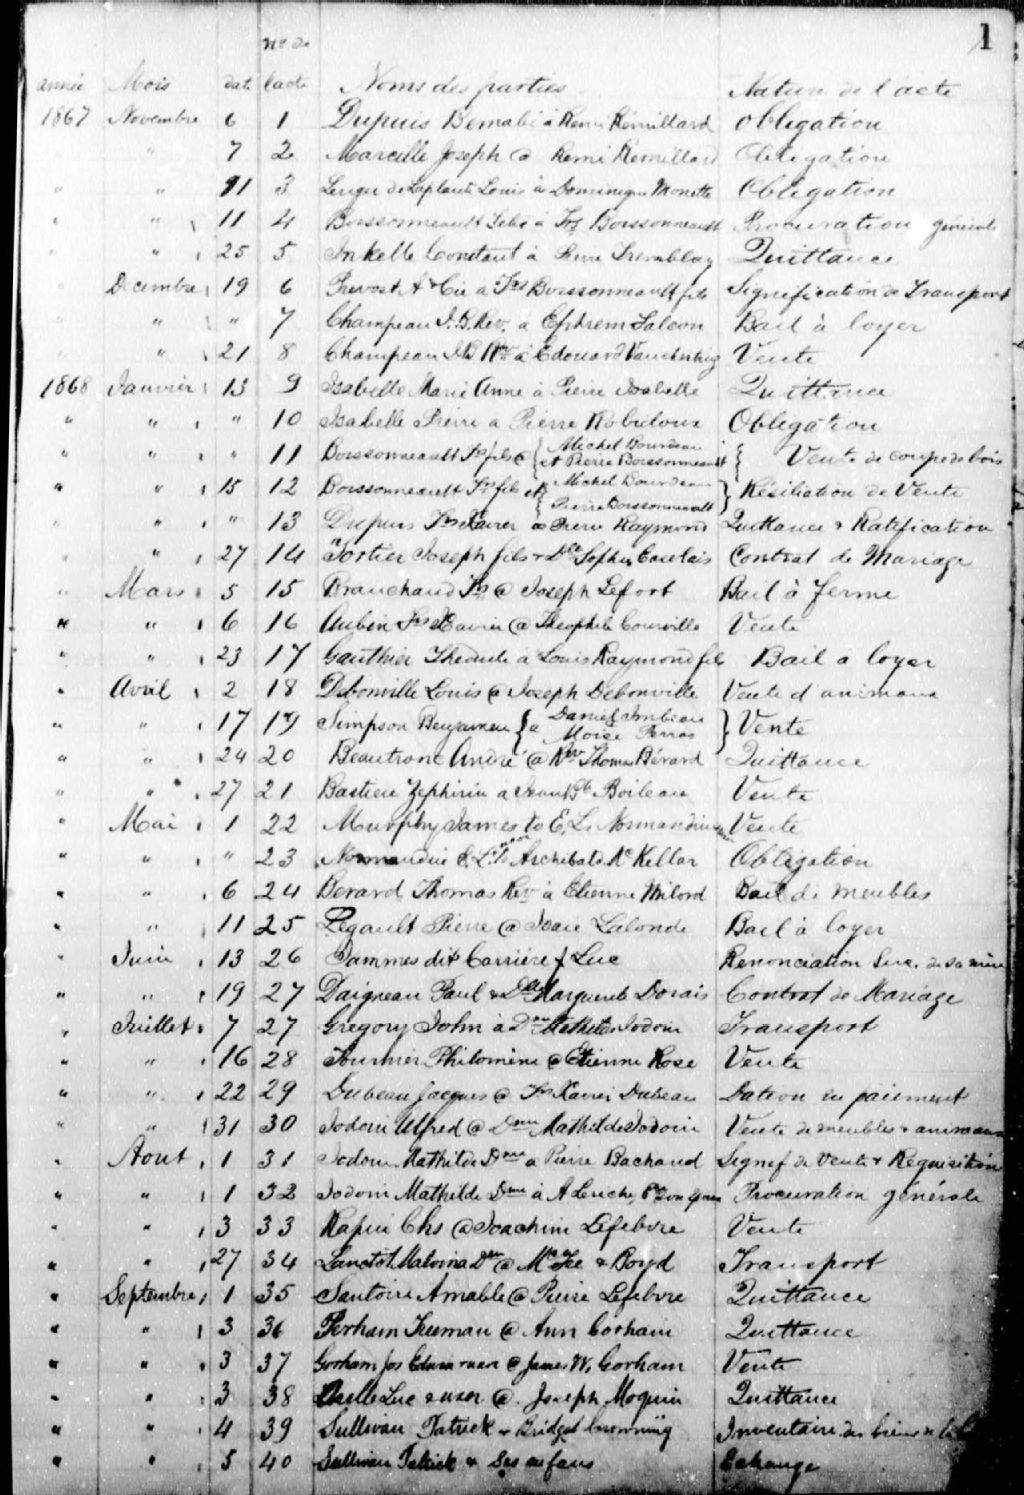 1
no de
année Mois date l'acte Noms des parties Nature de l'acte
1867 Novembre 6 1 Dupuis Bernabé à Remi Rémillard Obligation
" 7 2 Marcille Joseph @ Remi Remillard Obligation
" " 11 3 Lenger de Laplante Louis à Dominique Monette Obligation
" " 11 4 Boissonneault à Frs Boissonneault Procuration générale
" " 25 5 Inkelle Constant à Pierre Tremblay Quittance
Decembre 19 6 Prevost A & Cie a Frs Boissonneault fils Signification de Transport
" " " 7 Champeau J.B. Rev. a Ephrem Falcon Bail à loyer
" 21 8 Champeau J.B Rev à Edouard Vente
1868 Janvier 13 9 Isabelle Marie Anne à Pierre Isabelle Quittance
" " " 10 Isabelle Pierre a Pierre Robidoux Obligation
" " " 11 Boissonneault Frs fils @ { Michel Bourdeau et Pierre Boissonneault } Vente de coupe de bois
" " 15 12 Boissonneault Frs fils et { Michel Bourdeau Pierre Boissonneault } Résiliation de Vente
" " " 13 Dupuis Frs Xavier a Pierre Raymond Quittance & Ratification
" " 27 14 Fortier Joseph fils & Dlle Sophie Contrat de Mariage
" Mars 5 15 Branchaud Frs @ Joseph Lefort Bail à ferme
" " 6 16 Aubin Frs Xavier @ Theophile Courville Vente
" " 23 17 Gauthier Thedule à Louis Raymond fils Bail a loyer
" Avril 2 18 Debonville Louis @ Joseph Debonville Vente d'animaux
" " 17 19 Simpson Benjamen { a Daniel Imbeau Moise Perras } Vente
" " 24 20 Beautronc André @ Rev Thomas Bérard Quittance
" " 27 21 Bastien Zephirin a Jean Bte Boileau Vente
" Mai 1 22 Murphy James to E. L. Normandin Vente
" " " 23 Normandin E. L. To Archibald McKellar Obligation
" " 6 24 Berard Thomas Rev à Etienne Milord Bail de meubles
" " 11 25 Legault Pierre @ Isaie Lalonde Bail à loyer
" Juin 13 26 Jammes dit Carrière f Luc Renonciation Suc. de sa mère
" " 19 27 Daigneau Paul & Dlle Marguerite Dorais Contrat de Mariage
" Juillet 7 27 Gregory John à Dme Mathilde Jodoin Transport
" " 16 28 Fournier Philomène @ Etienne Rose Vente
" " 22 29 Dubeau Jacques @ Frs Xavier Dubeau Dation en paiement
" " 31 30 Jodoin Alfred @ Dme Mathilde Jodoin Vente de meubles & animaux
" Aout 1 31 Jodoin Mathilde Dme a Pierre Bachand Signif de Vente & Requisition
" " 1 32 Jodoin Mathilde Dme à A Procuration générale
" " 3 33 Rapin Chs @ Joachim Lefebvre Vente
" " 27 34 Lanctot Malvina Dme @ McGee & Boyd Transport
" Septembre 1 35 Santoire Amable @ Pierre Lefebvre Quittance
" " 3 36 Perham Freeman @ Ann Gorham Quittance
" " 3 37 Gorham Jos Edwin @ James W. Gorham Vente
" " 3 38 Luc & uxor @ Joseph Moquin Quittance
" " 4 39 Sullivan Patrick & Bridget browning Inventaire des biens
" " 5 40 Sullivan Patrick & Ses enfans Echange